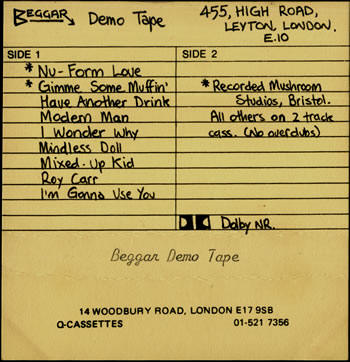 BEGGAR Demo Tape
455, HIGH ROAD,
LEYTON, LONDON.
E.10
SIDE 1
* Nu-Form Love
* Gimme Some Muffin'
Have Another Drink
Modern Man
I Wonder Why
Mindless Doll
Mixed-Up Kid
Roy Carr
I'm Gonna Use You
SIDE 2
* Recorded Mushroom
Studios, Bristol.
All others on 2 track
cass. (No overdubs)
Dolby NR.
Beggar Demo Tape
14 WOODBURY ROAD, LONDON E17 9SB
Q-CASSETTES 01-521 7356